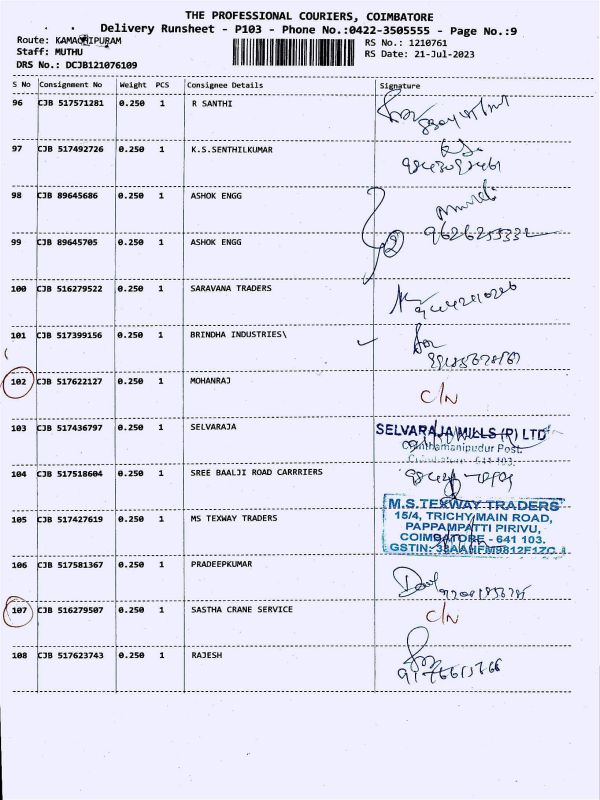 THE PROFESSIONAL COURIERS, COIMBATORE
Delivery Runsheet - P103 - Phone No.:0422-3505555 - Page No.:9
Route: KAMACHIPURAM
RS No.: 1210761
Staff: MUTHU
RS Date: 21-Jul-2023
DRS No.: DCJB121076109
S No Consignment No Weight PCS Consignee Details Signature
96 CJB 517571281 0.250 1 R SANTHI
97 CJB 517492726 0.250 1 K.S.SENTHILKUMAR
98 CJB 89645686 0.250 1 ASHOK ENGG
99 CJB 89645705 0.250 1 ASHOK ENGG 2 9626255332
100 CJB 516279522 0.250 1 SARAVANA TRADERS
101 CJB 517399156 0.250 1 BRINDHA INDUSTRIES\
102 CJB 517622127 0.250 1 MOHANRAJ C/N
103 CJB 517436797 0.250 1 SELVARAJA SELVARAJA MILLS (P) LTD
Chinthamanipudur Post.
Coimbatore - 641 103.
104 CJB 517518604 0.250 1 SREE BAALJI ROAD CARRRIERS
105 CJB 517427619 0.250 1 MS TEXWAY TRADERS M.S.TEXWAY TRADERS
15/4, TRICHY MAIN ROAD,
PAPPAMPATTI PIRIVU,
COIMBATORE - 641 103.
GSTIN:
106 CJB 517581367 0.250 1 PRADEEPKUMAR
107 CJB 516279507 0.250 1 SASTHA CRANE SERVICE C/N
108 CJB 517623743 0.250 1 RAJESH